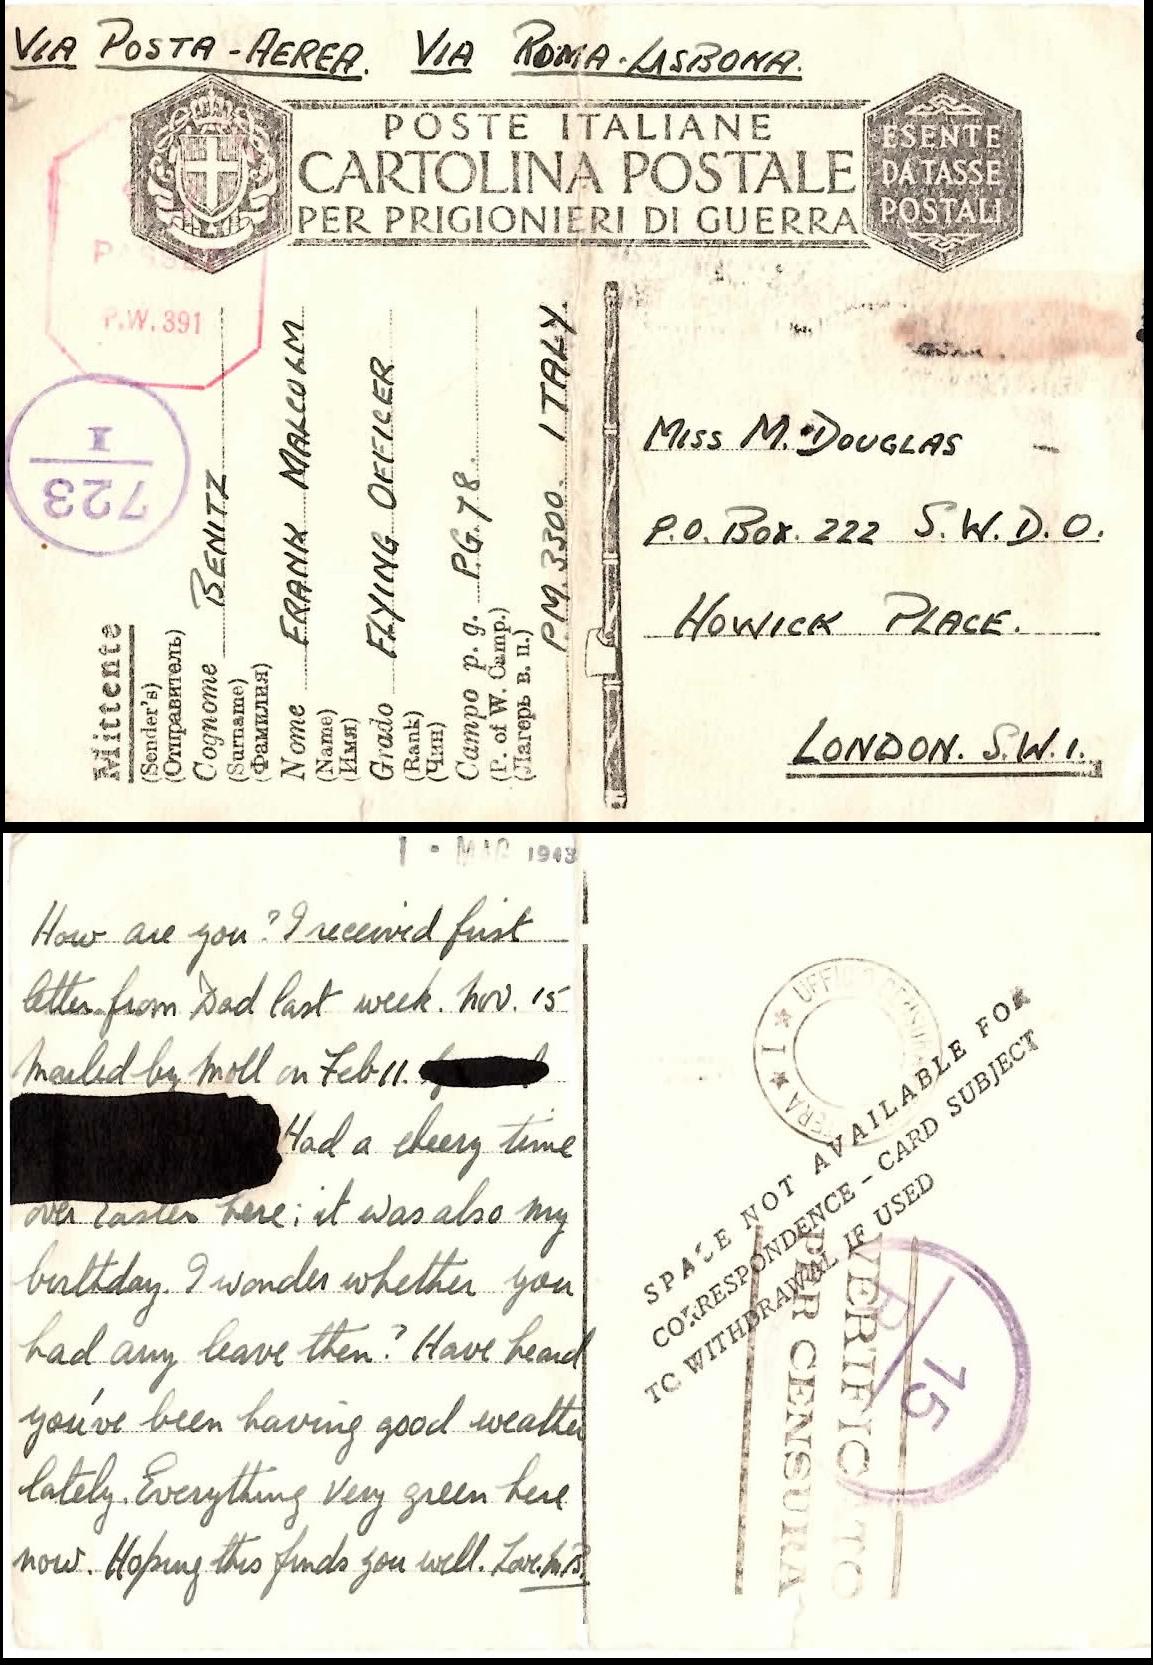 VIA POSTA-AEREA. VIA ROMA-LISBONA.
POSTE ITALIANE
CARTOLINA POSTALE
PER PRIGIONIERI DI GUERRA
ESENTE
DA TASSE
POSTALI
P.W. 391
723
I
Mittente
(Sender's)
(Отправитель)
Cognome BENITZ
(Surname)
(Фамилия)
Nome FRANK MALCOLM
(Name)
(Имя)
Grado FLYING OFFICER
(Rank)
(Чин)
Campo p. g. P.G. 78.
(P. of W. Camp.)
(Лагерь в. п.)
P.M. 3300. ITALY.
MISS M. DOUGLAS
P.O. BOX. 222 S.W.D.O.
HOWICK PLACE.
LONDON. S.W.1.
1 - MAR 1943
How are you? I received first
letter from Dad last week. Nov. 15
Mailed by Moll on Feb 11.
Had a cheery time
over Easter here; it was also my
birthday. I wonder whether you
had any leave then? Have heard
you've been having good weather
lately. Everything very green here
now. Hoping this finds you well. Love. M.B.
UFFICIO CENSURA
SPACE NOT AVAILABLE FOR
CORRESPONDENCE - CARD SUBJECT
TO WITHDRAWAL IF USED
VERIFICATO
PER CENSURA
15